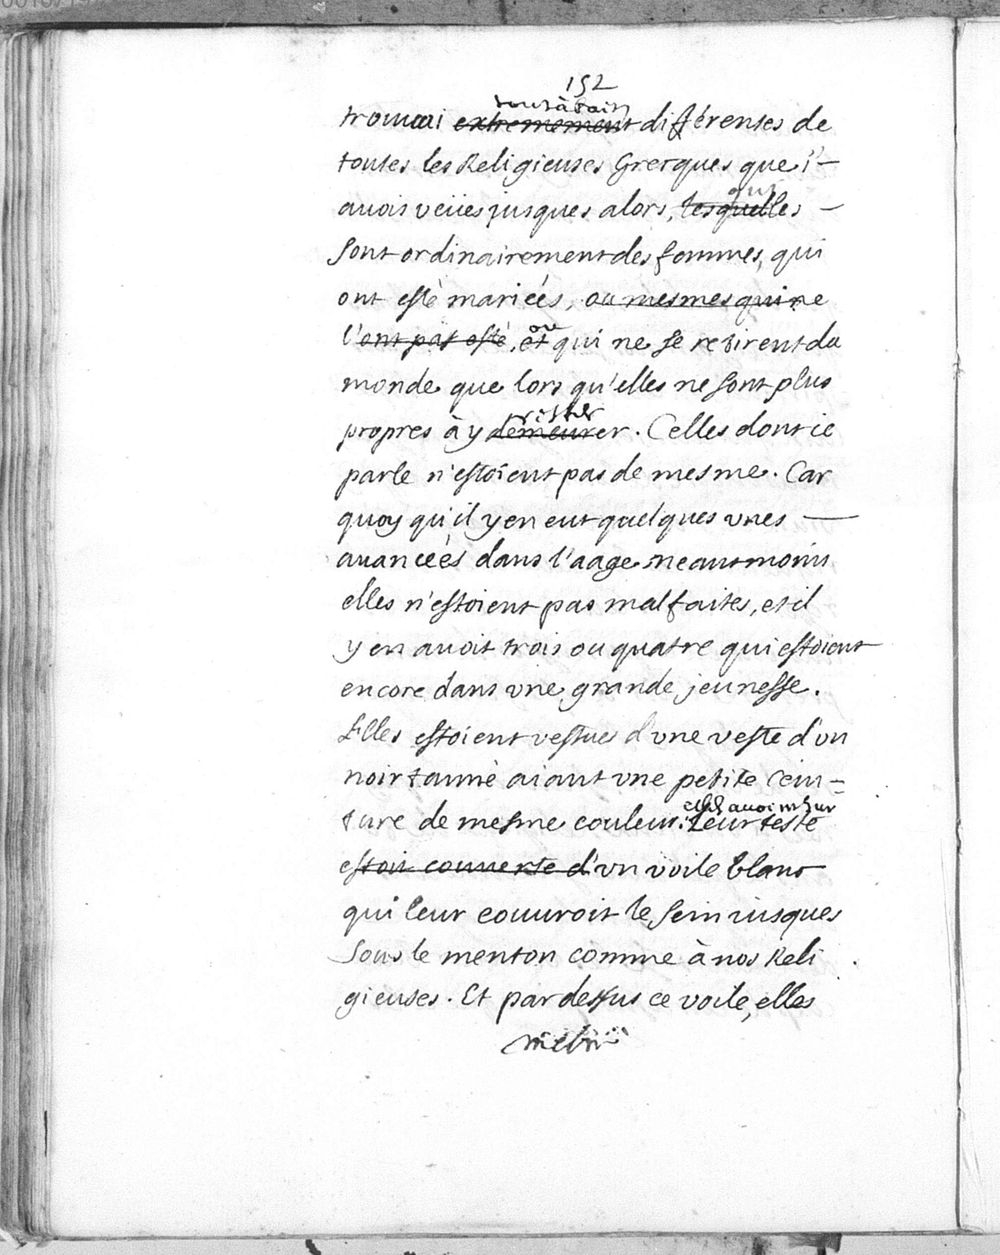 152
tout à fait
trouuai extremement différentes de
toutes les Religieuses Grecques que i'-
qui
auois veües jusques alors, lesquelles -
sont ordinairement des femmes, qui
ont esté mariées, ou mesmes qui ne
ou
l'ont pas esté, et qui ne se retirent du
monde que lors qu'elles ne sont plus
rester
propres à y demeurer. Celles dont ie
parle n'estoient pas de mesme. Car
quoy qu'il y en eut quelques vnes -
auancées dans l'aage neantmoins
elles n'estoient pas malfaites, et il
y en auoit trois ou quatre qui estoient
encore dans vne grande jeunesse.
Elles estoient vestues d'vne veste d'vn
noir tanné aiant vne petite cein-
elles auoient sur
ture de mesme couleur. Leur teste
estoit couuerte d'vn voile blanc
qui leur couuroit le sein iusques
sous le menton comme à nos Reli
gieuses. Et par dessus ce voile, elles